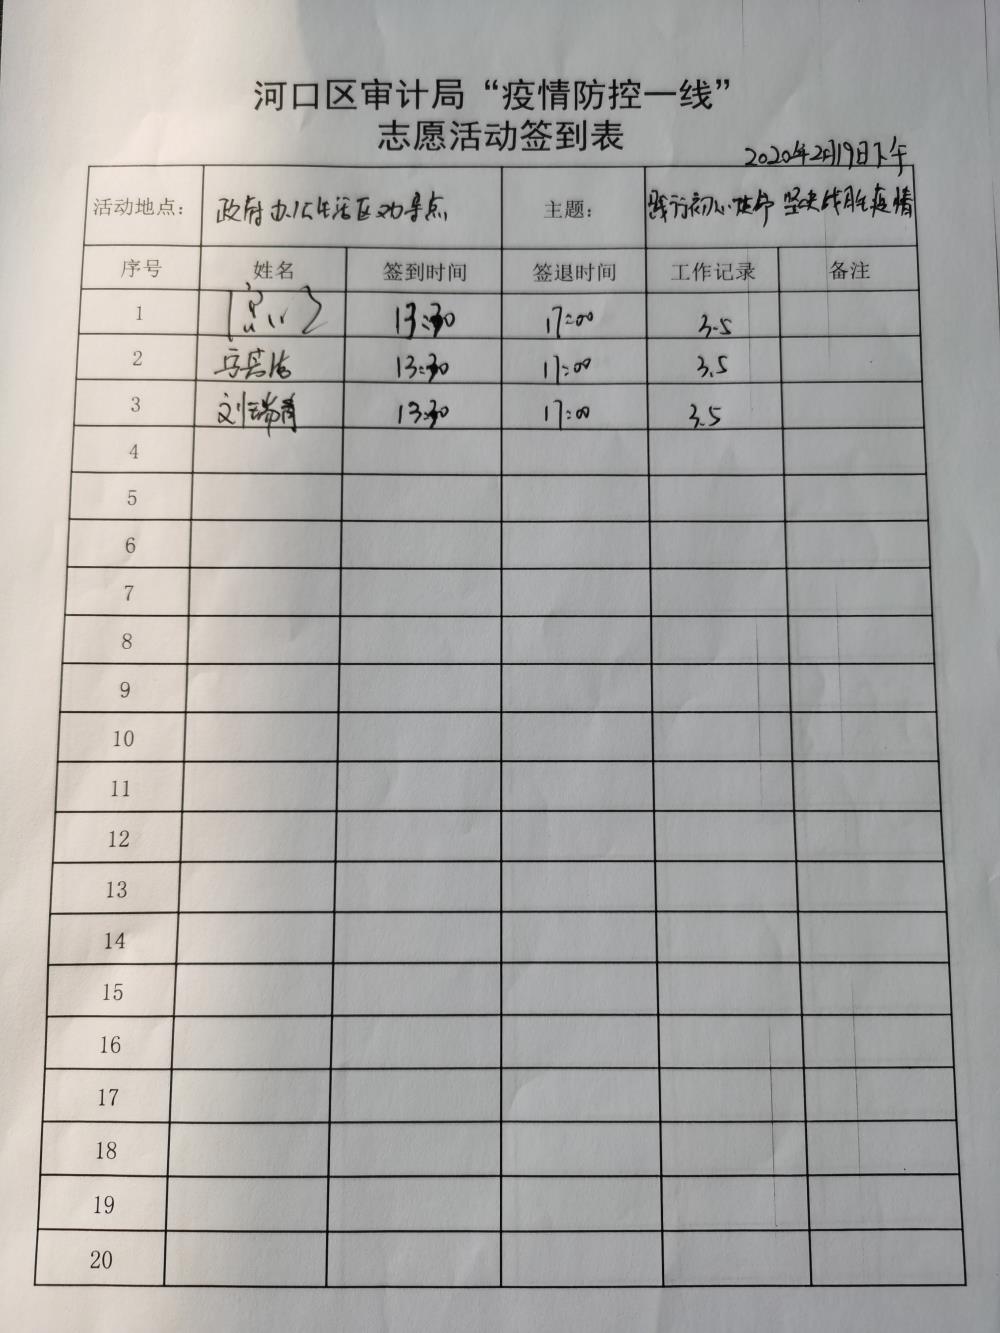 河口区审计局“疫情防控一线”
志愿活动签到表
2020年2月19日下午
活动地点: 政府办公生活区劝导点 主题: 践行初心使命 坚决战胜疫情
序号 姓名 签到时间 签退时间 工作记录 备注
1 13:30 17:00 3.5
2 13:30 17:00 3.5
3 刘瑞青 13:30 17:00 3.5
4
5
6
7
8
9
10
11
12
13
14
15
16
17
18
19
20